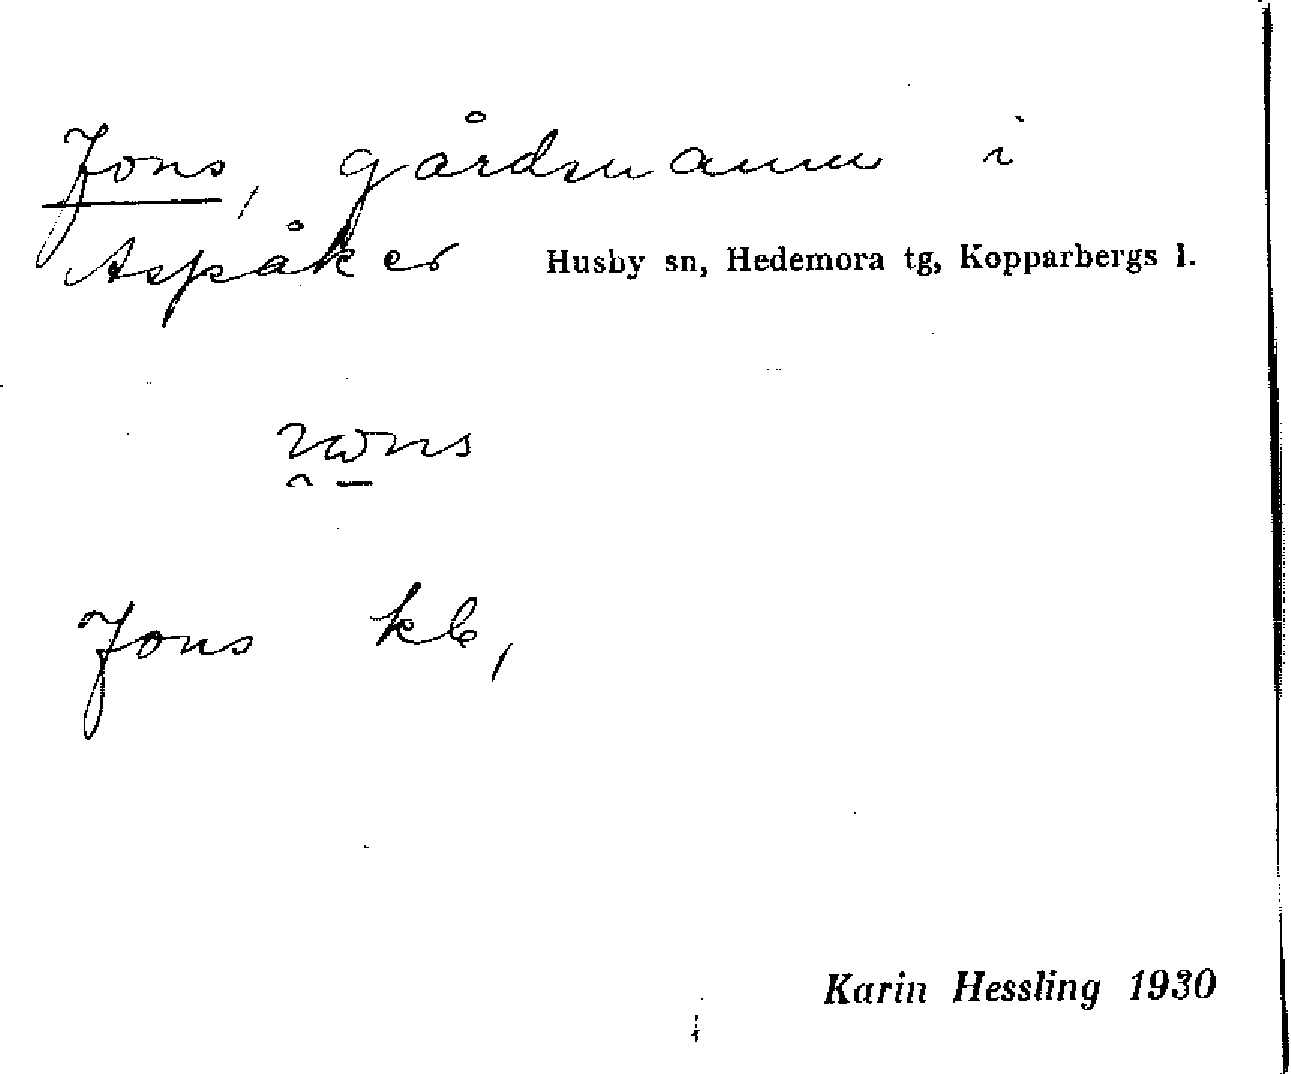 Jons, gårdsmann i
Aspåker Husby sn, Hedemora tg, Kopparbergs l.
Jons kb,
Karin Hessling 1930